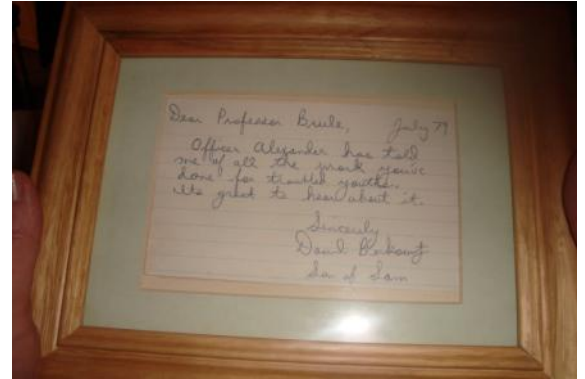 Dear Professor Brule,
July 79
Officer Alexander has told
me of all the work you've
done for troubled youths.
Its great to hear about it.
Sincerely
David Berkowitz
Son of Sam